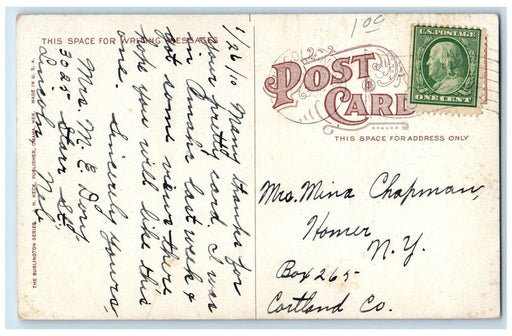 THIS SPACE FOR WRITING MESSAGES
1/26/10 Many thanks for
your pretty card. I was
in Omaha last week &
got some views there
hope you will like this
one. Sincerely yours,
Mrs. M. E. Dory
3025 Starr St.
Lincoln Neb.
THE BURLINGTON SERIES.
PUBLISHER, OMAHA, NEB. MADE IN U.S.A.
1 00
POST
CARD
U.S. POSTAGE
ONE CENT
THIS SPACE FOR ADDRESS ONLY
Mrs. Mina Chapman,
Homer
N.Y.
Box 265
Cortland Co.